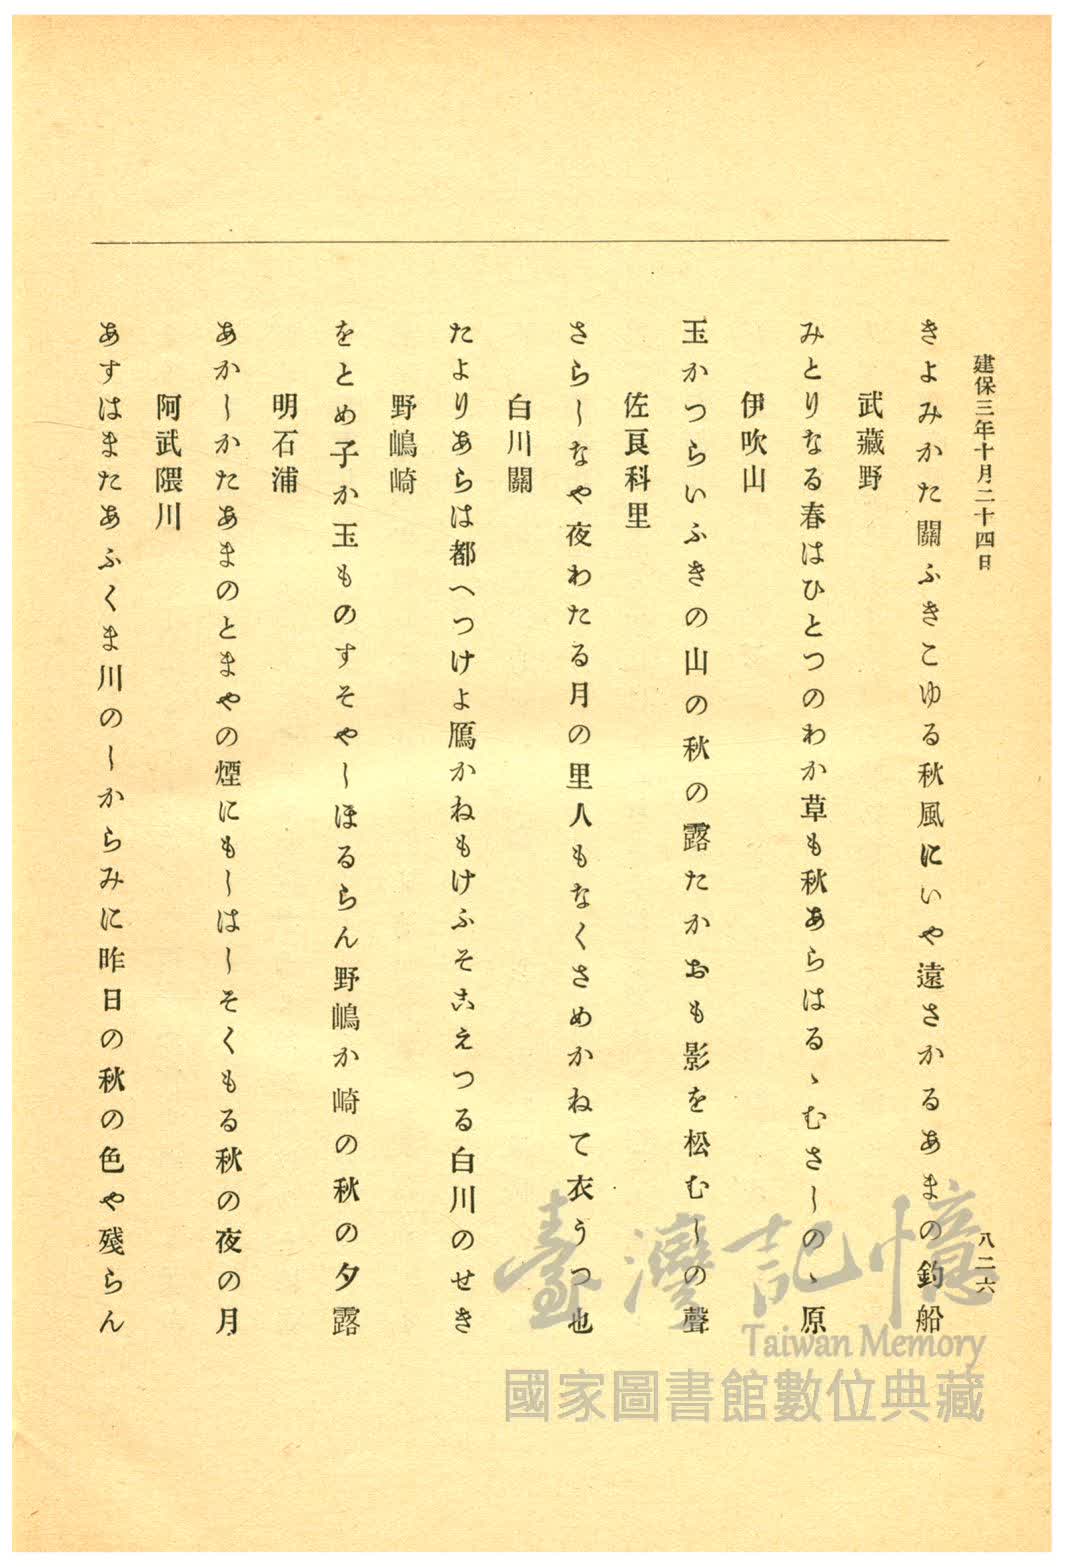 建保三年十月二十四日
八二六
きよみかた關ふきこゆる秋風にいや遠さかるあまの釣船
武藏野
みとりなる春はひとつのわか草も秋あらはるゝむさしのゝ原
伊吹山
玉かつらいふきの山の秋の露たかおも影を松むしの聲
佐良科里
さらしなや夜わたる月の里人もなくさめかねて衣うつ也
白川關
たよりあらは都へつけよ鴈かねもけふそこえつる白川のせき
野嶋崎
をとめ子か玉ものすそやしほるらん野嶋か崎の秋の夕露
明石浦
あかしかたあまのとまやの煙にもしはしそくもる秋の夜の月
阿武隈川
あすはまたあふくま川のしからみに昨日の秋の色や殘らん
臺灣記憶
Taiwan Memory
國家圖書館數位典藏